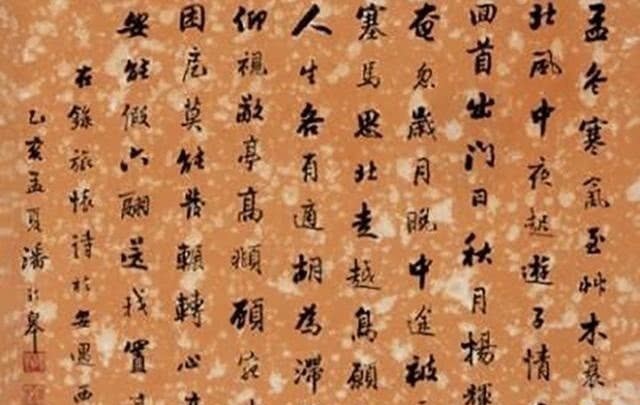 孟冬寒氣至艸木衰
北風中夜起遊子情
回首出門日秋月揚輝
奄忽歲月晚中途被
塞馬思北走越鳥願
人生各有適胡為滯
仰視敞亭高頫顧宛
困底莫能發輾轉心
安能假六翮送我置
右錄旅懷詩於安遇西
乙亥孟夏潘齡皋